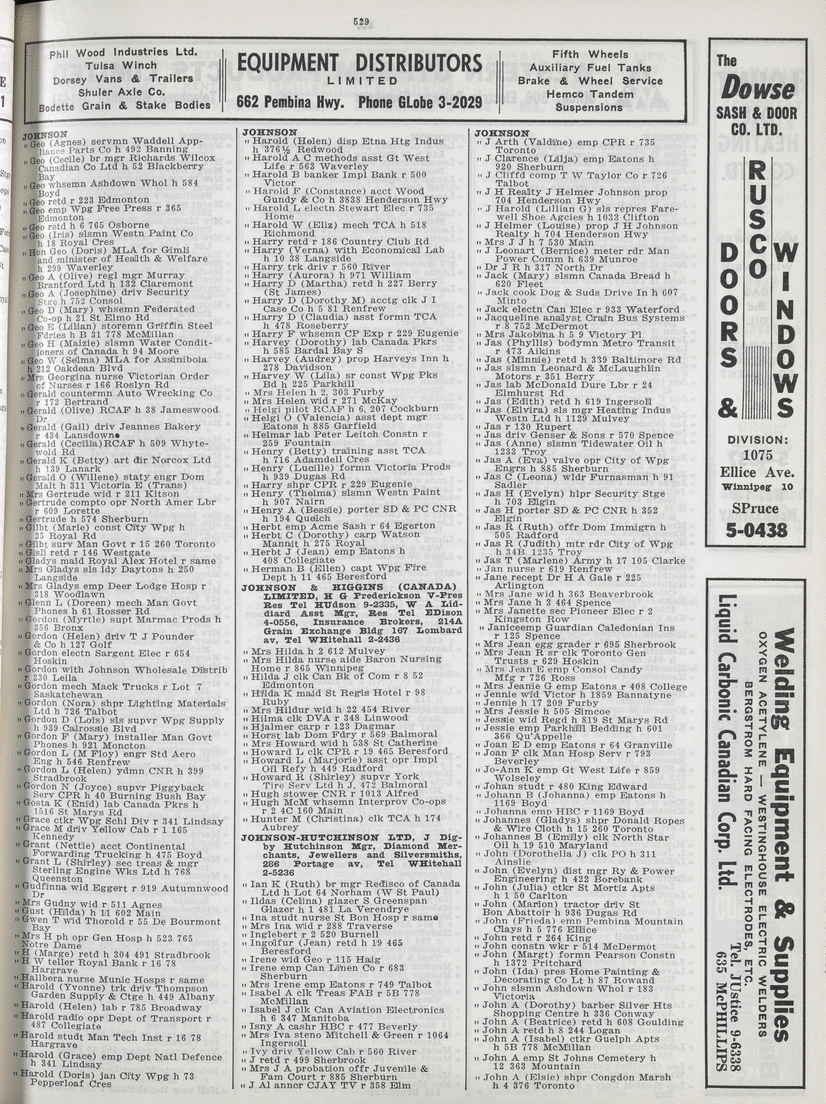 529
Phil Wood Industries Ltd.
Tulsa Winch
Dorsey Vans & Trailers
Shuler Axle Co.
Bodette Grain & Stake Bodies
EQUIPMENT DISTRIBUTORS
LIMITED
662 Pembina Hwy. Phone GLobe 3-2029
Fifth Wheels
Auxiliary Fuel Tanks
Brake & Wheel Service
Hemco Tandem
Suspensions
JOHNSON
" Geo (Agnes) servmn Waddell App-
liance Parts Co h 492 Banning
" Geo (Cecile) br mgr Richards Wilcox
Canadian Co Ltd h 52 Blackberry
Bay
" Geo whsemn Ashdown Whol h 584
Boyd
" Geo retd r 223 Edmonton
" Geo emp Wpg Free Press r 365
Edmonton
" Geo retd h 6 765 Osborne
" Geo (Iris) slsmn Westn Paint Co
h 18 Royal Cres
" Hon Geo (Doris) MLA for Gimli
and minister of Health & Welfare
h 299 Waverley
" Geo A (Olive) regl mgr Murray
Brantford Ltd h 132 Claremont
" Geo A (Josephine) driv Security
Stge h 752 Consol
" Geo D (Mary) whsemn Federated
Co-op h 21 St Elmo Rd
" Geo E (Lilian) storemn Griffin Steel
Fdries h B 31 778 McMillan
" Geo H (Maizie) slsmn Water Condit-
ioners of Canada h 94 Moore
" Geo W (Selma) MLA for Assiniboia
h 212 Oakdean Blvd
" Mrs Georgina nurse Victorian Order
of Nurses r 166 Roslyn Rd
" Gerald countermn Auto Wrecking Co
r 173 Bertrand
" Gerald (Olive) RCAF h 38 Jameswood
Dr
" Gerald (Gail) driv Jeannes Bakery
r 434 Lansdowne
" Gerald (Cecilia)RCAF h 509 Whyte-
wold Rd
" Gerald K (Betty) art dir Norcox Ltd
h 139 Lanark
" Gerald O (Willene) staty engr Dom
Malt h 311 Victoria E (Trans)
" Mrs Gertrude wid r 211 Kitson
" Gertrude compto opr North Amer Lbr
r 609 Lorette
" Gertrude h 574 Sherburn
" Gilbt (Marie) const City Wpg h
25 Royal Rd
" Gilbt surv Man Govt r 15 260 Toronto
" Gisli retd r 146 Westgate
" Gladys maid Royal Alex Hotel r same
" Mrs Gladys sls ldy Daytons h 250
Langside
" Mrs Gladys emp Deer Lodge Hosp r
318 Woodlawn
" Glenn L (Doreen) mech Man Govt
Phones h 61 Rosser Rd
" Gordon (Myrtle) supt Marmac Prods h
356 Bronx
" Gordon (Helen) driv T J Pounder
& Co h 127 Golf
" Gordon electn Sargent Elec r 654
Hoskin
" Gordon with Johnson Wholesale Distrib
r 230 Leila
" Gordon mech Mack Trucks r Lot 7
Saskatchewan
" Gordon (Nora) shpr Lighting Materials
Ltd h 726 Talbot
" Gordon D (Lois) sls supvr Wpg Supply
h 939 Cairossie Blvd
" Gordon F (Mary) installer Man Govt
Phones h 921 Moncton
" Gordon L (M Floy) engr Std Aero
Eng h 546 Renfrew
" Gordon L (Helen) ydmn CNR h 399
Stradbrook
" Gordon N (Joyce) supvr Piggyback
Serv CPR h 40 Burning Bush Bay
" Gosta K (Enid) lab Canada Pkrs h
1516 St Marys Rd
" Grace ctkr Wpg Schl Div r 341 Lindsay
" Grace M driv Yellow Cab r 1 165
Kennedy
" Grant (Nettie) acct Continental
Forwarding Trucking h 475 Boyd
" Grant L (Shirley) sec treas & mgr
Sterling Engine Wks Ltd h 768
Queenston
" Gudfinna wid Eggert r 919 Autumnwood
Dr
" Mrs Gudny wid r 511 Agnes
" Gust (Hilda) h 11 602 Main
" Gwen T wid Thorold r 55 De Bourmont
Bay
" Mrs H ph opr Gen Hosp h 523 765
Notre Dame
" H (Marge) retd h 304 491 Stradbrook
" H W teller Royal Bank r 16 78
Hargrave
" Hallbera nurse Munic Hosps r same
" Harold (Yvonne) trk driv Thompson
Garden Supply & Ctge h 449 Albany
" Harold (Helen) lab r 785 Broadway
" Harold radio opr Dept of Transport r
487 Collegiate
" Harold studt Man Tech Inst r 16 78
Hargrave
" Harold (Grace) emp Dept Natl Defence
h 341 Lindsay
" Harold (Doris) jan City Wpg h 73
Pepperloaf Cres
JOHNSON
" Harold (Helen) disp Etna Htg Indus
h 376½ Redwood
" Harold A C methods asst Gt West
Life r 563 Waverley
" Harold B banker Impl Bank r 500
Victor
" Harold F (Constance) acct Wood
Gundy & Co h 3838 Henderson Hwy
" Harold L electn Stewart Elec r 735
Home
" Harold W (Eliz) mech TCA h 518
Richmond
" Harry retd r 186 Country Club Rd
" Harry (Verna) with Economical Lab
h 10 38 Langside
" Harry trk driv r 560 River
" Harry (Aurora) h 971 William
" Harry D (Martha) retd h 227 Berry
(St James)
" Harry D (Dorothy M) acctg clk J I
Case Co h 5 81 Renfrew
" Harry D (Claudia) asst formn TCA
h 478 Roseberry
" Harry F whsemn CP Exp r 229 Eugenie
" Harvey (Dorothy) lab Canada Pkrs
h 585 Bardal Bay S
" Harvey (Audrey) prop Harveys Inn h
278 Davidson
" Harvey W (Lila) sr const Wpg Pks
Bd h 225 Parkhill
" Mrs Helen h 2, 303 Furby
" Mrs Helen wid r 271 McKay
" Helgi pilot RCAF h 6, 207 Cockburn
" Helgi O (Valencia) asst dept mgr
Eatons h 885 Garfield
" Helmar lab Peter Leitch Constn r
259 Fountain
" Henry (Betty) training asst TCA
h 716 Adamdell Cres
" Henry (Lucille) formn Victoria Prods
h 939 Dugas Rd
" Harry shpr CPR r 229 Eugenie
" Henry (Thelma) slsmn Westn Paint
h 907 Nairn
" Henry A (Bessie) porter SD & PC CNR
h 194 Quelch
" Herbt emp Acme Sash r 64 Egerton
" Herbt C (Dorothy) carp Watson
Mannit h 275 Royal
" Herbt J (Jean) emp Eatons h
408 Collegiate
" Herman B (Ellen) capt Wpg Fire
Dept h 11 465 Beresford
JOHNSON & HIGGINS (CANADA)
LIMITED, H G Frederickson V-Pres
Res Tel HUdson 9-2335, W A Lid-
diard Asst Mgr, Res Tel EDison
4-0556, Insurance Brokers, 214A
Grain Exchange Bldg 167 Lombard
av, Tel WHitehall 2-2436
" Mrs Hilda h 2 612 Mulvey
" Mrs Hilda nurse aide Baron Nursing
Home r 865 Winnipeg
" Hilda J clk Can Bk of Com r 8 52
Edmonton
" Hilda K maid St Regis Hotel r 98
Ruby
" Mrs Hildur wid h 22 454 River
" Hilma clk DVA r 348 Linwood
" Hjalmer carp r 123 Dagmar
" Horst lab Dom Fdry r 569 Balmoral
" Mrs Howard wid h 538 St Catherine
" Howard L clk CPR r 19 465 Beresford
" Howard L (Marjorie) asst opr Impl
Oil Refy h 449 Radford
" Howard R (Shirley) supvr York
Tire Serv Ltd h J, 472 Balmoral
" Hugh stower CNR r 1013 Alfred
" Hugh McM whsemn Interprov Co-ops
r 2 4C 160 Main
" Hunter M (Christina) clk TCA h 174
Aubrey
JOHNSON-HUTCHINSON LTD, J Dig-
by Hutchinson Mgr, Diamond Mer-
chants, Jewellers and Silversmiths,
286 Portage av, Tel WHitehall
2-5236
" Ian K (Ruth) br mgr Redisco of Canada
Ltd h Lot 64 Norham (W St Paul)
" Ildas (Celina) glazer S Greenspan
Glazer h 1 481 La Verendrye
" Ina studt nurse St Bon Hosp r same
" Mrs Ina wid r 288 Traverse
" Inglebert r 2 520 Burnell
" Ingolfur (Jean) retd h 19 465
Beresford
" Irene wid Geo r 115 Haig
" Irene emp Can Linen Co r 683
Sherburn
" Mrs Irene emp Eatons r 749 Talbot
" Isabel A clk Treas FAB r 5B 778
McMillan
" Isabel J clk Can Aviation Electronics
h 6 347 Manitoba
" Isny A cashr HBC r 477 Beverly
" Mrs Iva steno Mitchell & Green r 1064
Ingersoll
" Ivy driv Yellow Cab r 560 River
" J retd r 499 Sherbrook
" Mrs J A probation offr Juvenile &
Fam Court r 885 Sherburn
" J Al anncr CJAY TV r 358 Elm
JOHNSON
" J Arth (Valdine) emp CPR r 735
Toronto
" J Clarence (Lilja) emp Eatons h
920 Sherburn
" J Cliffd compt T W Taylor Co r 726
Talbot
" J H Realty J Helmer Johnson prop
704 Henderson Hwy
" J Harold (Lillian G) sls repres Fare-
well Shoe Agcies h 1033 Clifton
" J Helmer (Louise) prop J H Johnson
Realty h 704 Henderson Hwy
" Mrs J J h 7 530 Main
" J Leonart (Bernice) meter rdr Man
Power Comm h 639 Munroe
" Dr J R h 317 North Dr
" Jack (Mary) slsmn Canada Bread h
620 Fleet
" Jack cook Dog & Suds Drive In h 607
Minto
" Jack electn Can Elec r 933 Waterford
" Jacqueline analyst Crain Bus Systems
r 8 752 McDermot
" Mrs Jakobina h 5 9 Victory Pl
" Jas (Phyllis) bodymn Metro Transit
r 473 Aikins
" Jas (Minnie) retd h 339 Baltimore Rd
" Jas slsmn Leonard & McLaughlin
Motors r 351 Berry
" Jas lab McDonald Dure Lbr r 24
Elmhurst Rd
" Jas (Edith) retd h 619 Ingersoll
" Jas (Elvira) sls mgr Heating Indus
Westn Ltd h 1129 Mulvey
" Jas r 130 Rupert
" Jas driv Genser & Sons r 570 Spence
" Jas (Anne) slsmn Tidewater Oil h
1233 Troy
" Jas A (Eva) valve opr City of Wpg
Engrs h 885 Sherburn
" Jas C (Leona) wldr Furnasman h 91
Sadler
" Jas H (Evelyn) hlpr Security Stge
h 703 Elgin
" Jas H porter SD & PC CNR h 352
Elgin
" Jas R (Ruth) offr Dom Immigrn h
505 Radford
" Jas R (Judith) mtr rdr City of Wpg
h 34B, 1235 Troy
" Jas T (Marlene) Army h 17 105 Clarke
" Jan nurse r 619 Renfrew
" Jane recept Dr H A Gale r 225
Arlington
" Mrs Jane wid h 363 Beaverbrook
" Mrs Jane h 3 464 Spence
" Mrs Janette sec Pioneer Elec r 2
Kingston Row
" Janiceemp Guardian Caledonian Ins
r 125 Spence
" Mrs Jean egg grader r 695 Sherbrook
" Mrs Jean R sr clk Toronto Gen
Trusts r 629 Hoskin
" Mrs Jean E emp Consol Candy
Mfg r 726 Ross
" Mrs Jeanie G emp Eatons r 408 College
" Jennie wid Victor h 1859 Bannatyne
" Jennie h 17 209 Furby
" Mrs Jessie h 505 Simcoe
" Jessie wid Regd h 819 St Marys Rd
" Jessie emp Parkhill Bedding h 601
366 Qu'Appelle
" Joan E D emp Eatons r 64 Granville
" Joan F clk Man Hosp Serv r 793
Beverley
" Jo-Ann K emp Gt West Life r 859
Wolseley
" Johan studt r 480 King Edward
" Johann B (Johanna) emp Eatons h
1169 Boyd
" Johanna emp HBC r 1169 Boyd
" Johannes (Gladys) shpr Donald Ropes
& Wire Cloth h 15 260 Toronto
" Johannes B (Emily) clk North Star
Oil h 19 510 Maryland
" John (Dorothella J) clk PO h 311
Ainslie
" John (Evelyn) dist mgr Ry & Power
Engineering h 422 Borebank
" John (Julia) ctkr St Mortiz Apts
h 1 50 Carlton
" John (Marion) tractor driv St
Bon Abattoir h 936 Dugas Rd
" John (Frieda) emp Pembina Mountain
Clays h 5 776 Ellice
" John retd r 264 King
" John constn wkr r 514 McDermot
" John (Margt) formn Pearson Constn
h 1372 Pritchard
" John (Ida) pres Home Painting &
Decorating Co Lt h 87 Rowand
" John slsmn Ashdown Whol r 183
Victoria
" John A (Dorothy) barber Silver Hts
Shopping Centre h 336 Conway
" John A (Beatrice) retd h 608 Goulding
" John A retd h 8 244 Logan
" John A (Isabel) ctkr Guelph Apts
h 5B 778 McMillan
" John A emp St Johns Cemetery h
12 363 Mountain
" John A (Elsie) shpr Congdon Marsh
h 4 376 Toronto
The
Dowse
SASH & DOOR
CO. LTD.
RUSCO
DOORS
&
WINDOWS
DIVISION:
1075
Ellice Ave.
Winnipeg 10
SPruce
5-0438
Welding Equipment & Supplies
OXYGEN ACETYLENE — WESTINGHOUSE ELECTRIC WELDERS
BERGSTROM HARD FACING ELECTRODES, ETC.
Liquid Carbonic Canadian Corp. Ltd.
Tel. JUstice 9-6338
635 McPHILLIPS